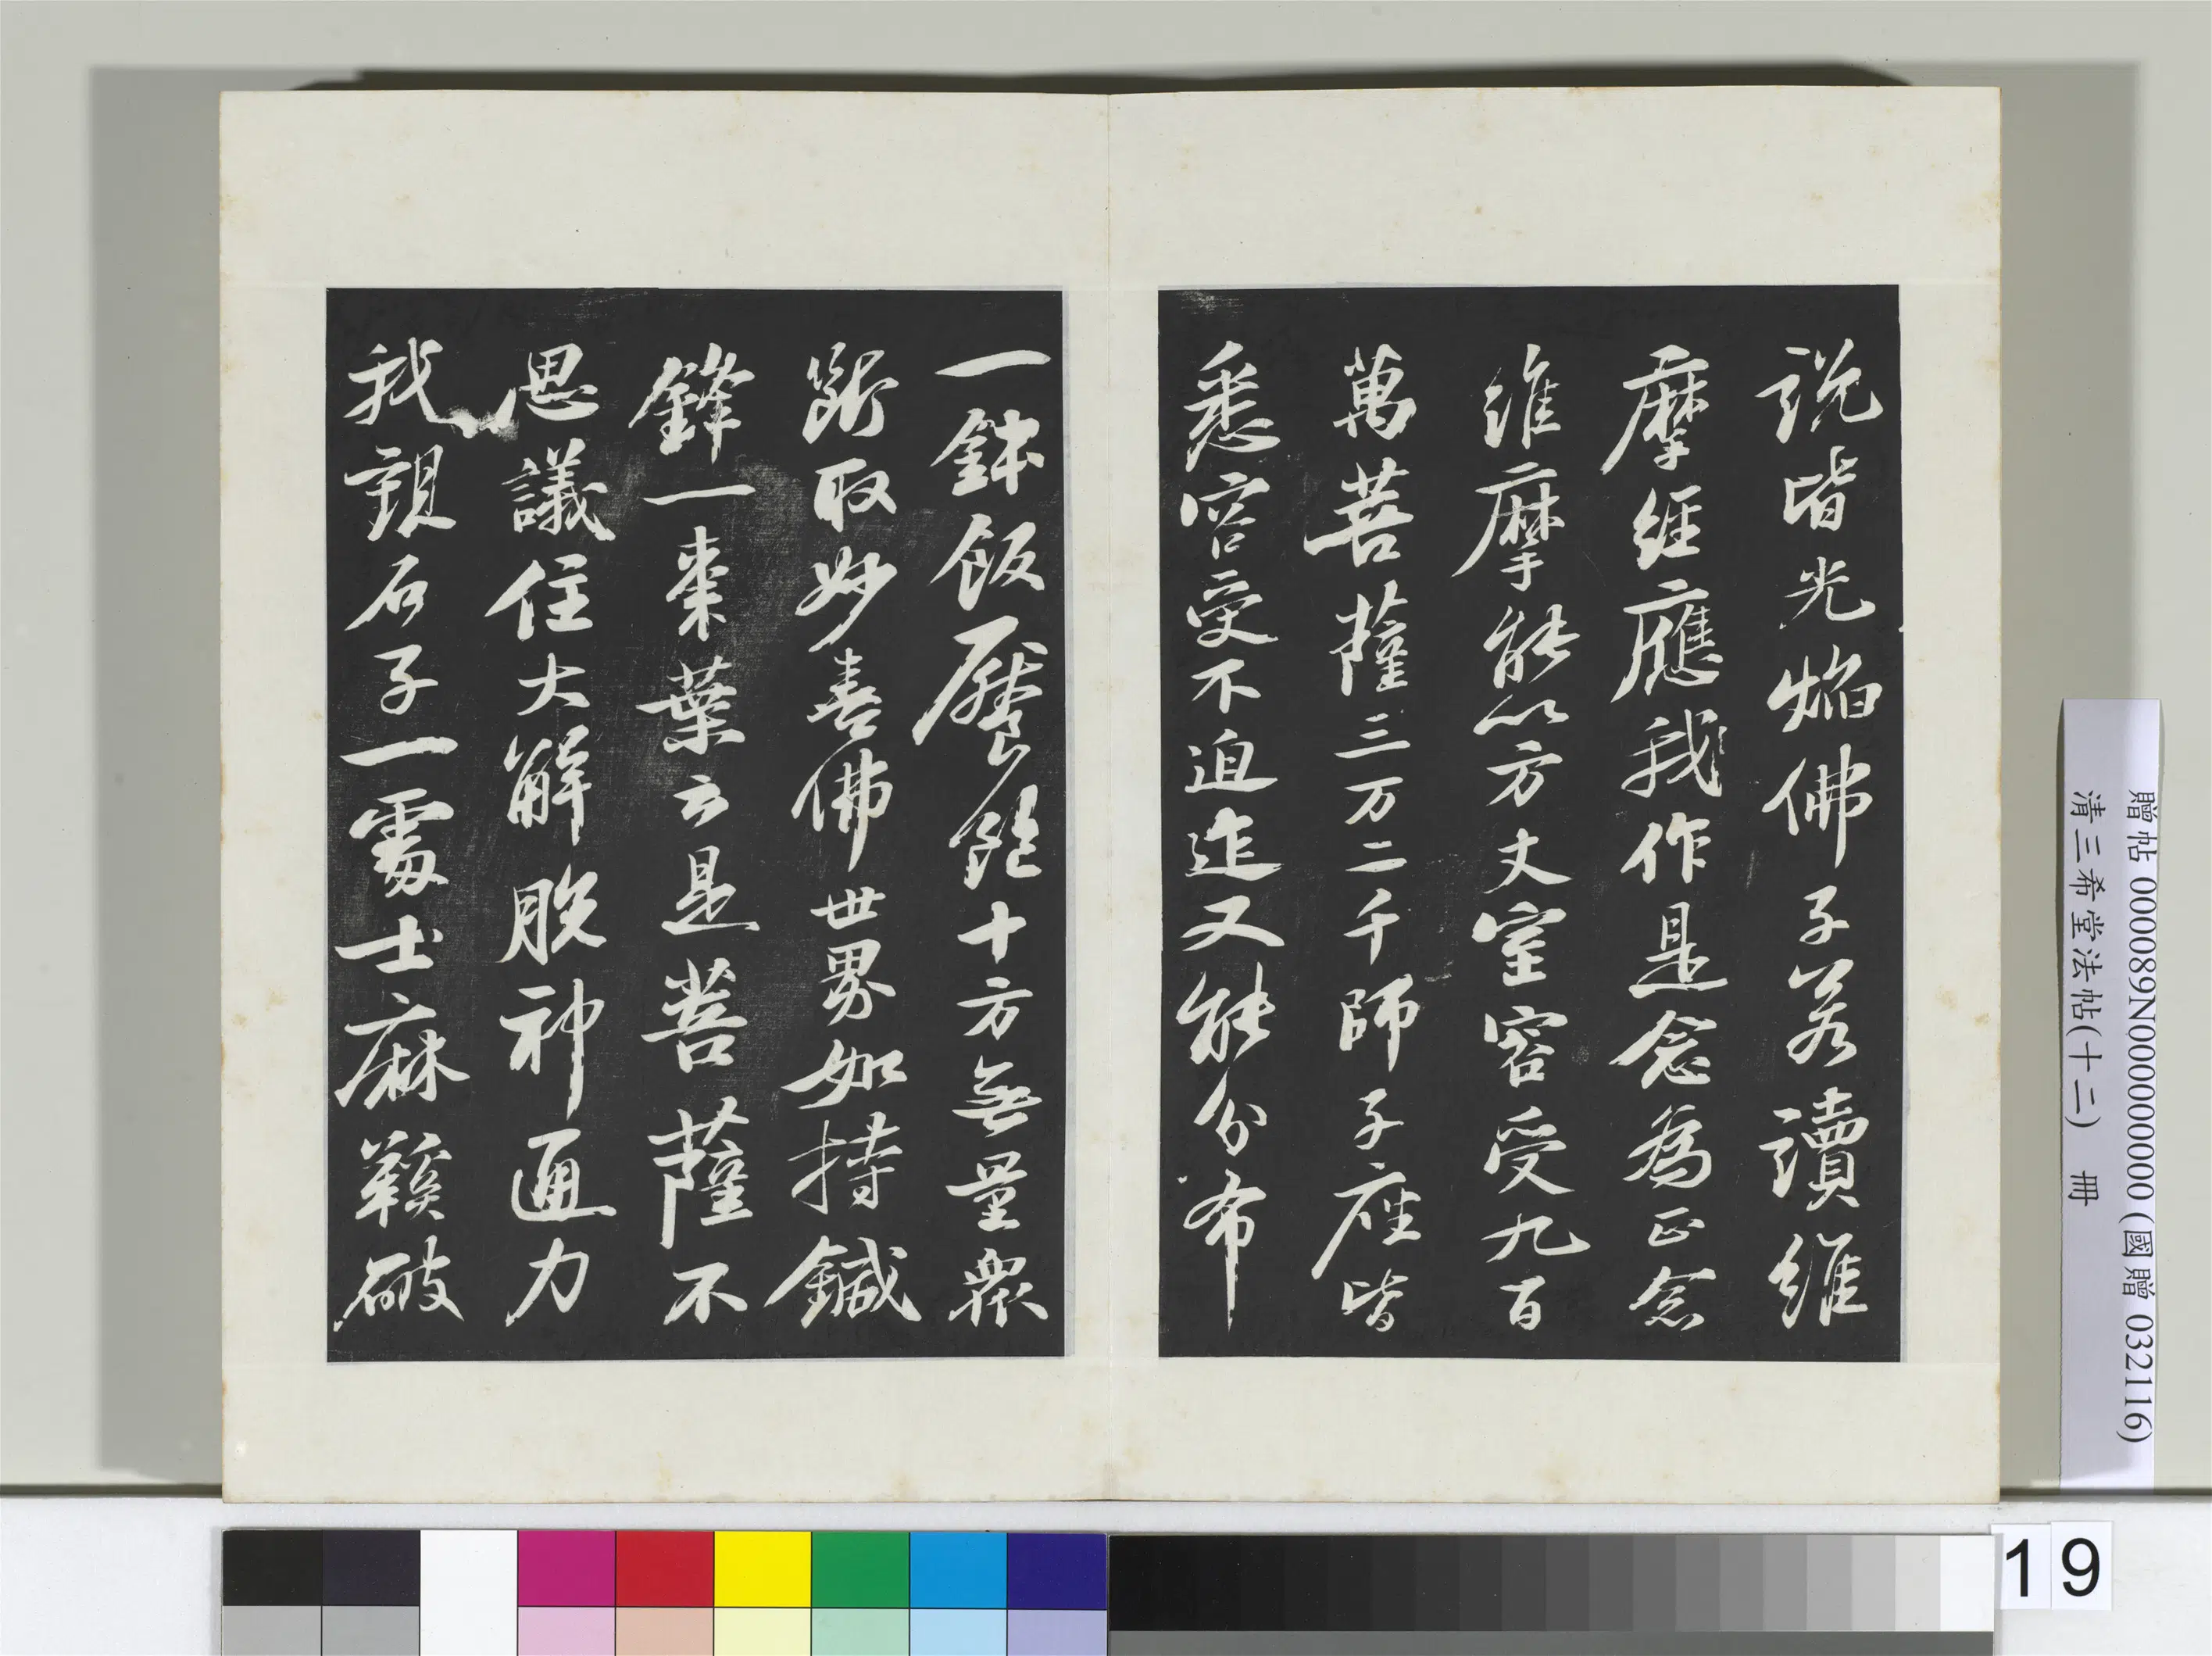 説皆光焰佛子若讀維
摩經應我作是念為正念
維摩能以方丈室容受九百
萬菩薩三万二千師子座皆
悉容受不迫迮又能分布
一鉢飯饜飽十方無量衆
斷取妙喜佛世界如持鍼
鋒一棗葉云是菩薩不
思議住大解脫神通力
我觀石子一處士麻鞵破
贈帖 000089N000000000 (國贈 032116)
清三希堂法帖(十二) 冊
19